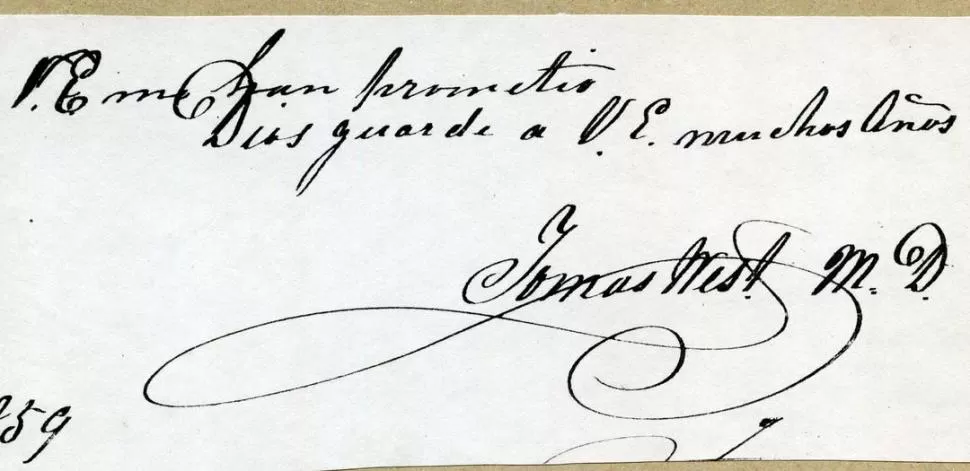 V. E me han prometio
Dios guarde a V. E. muchos Años
Tomas West M. D.
59